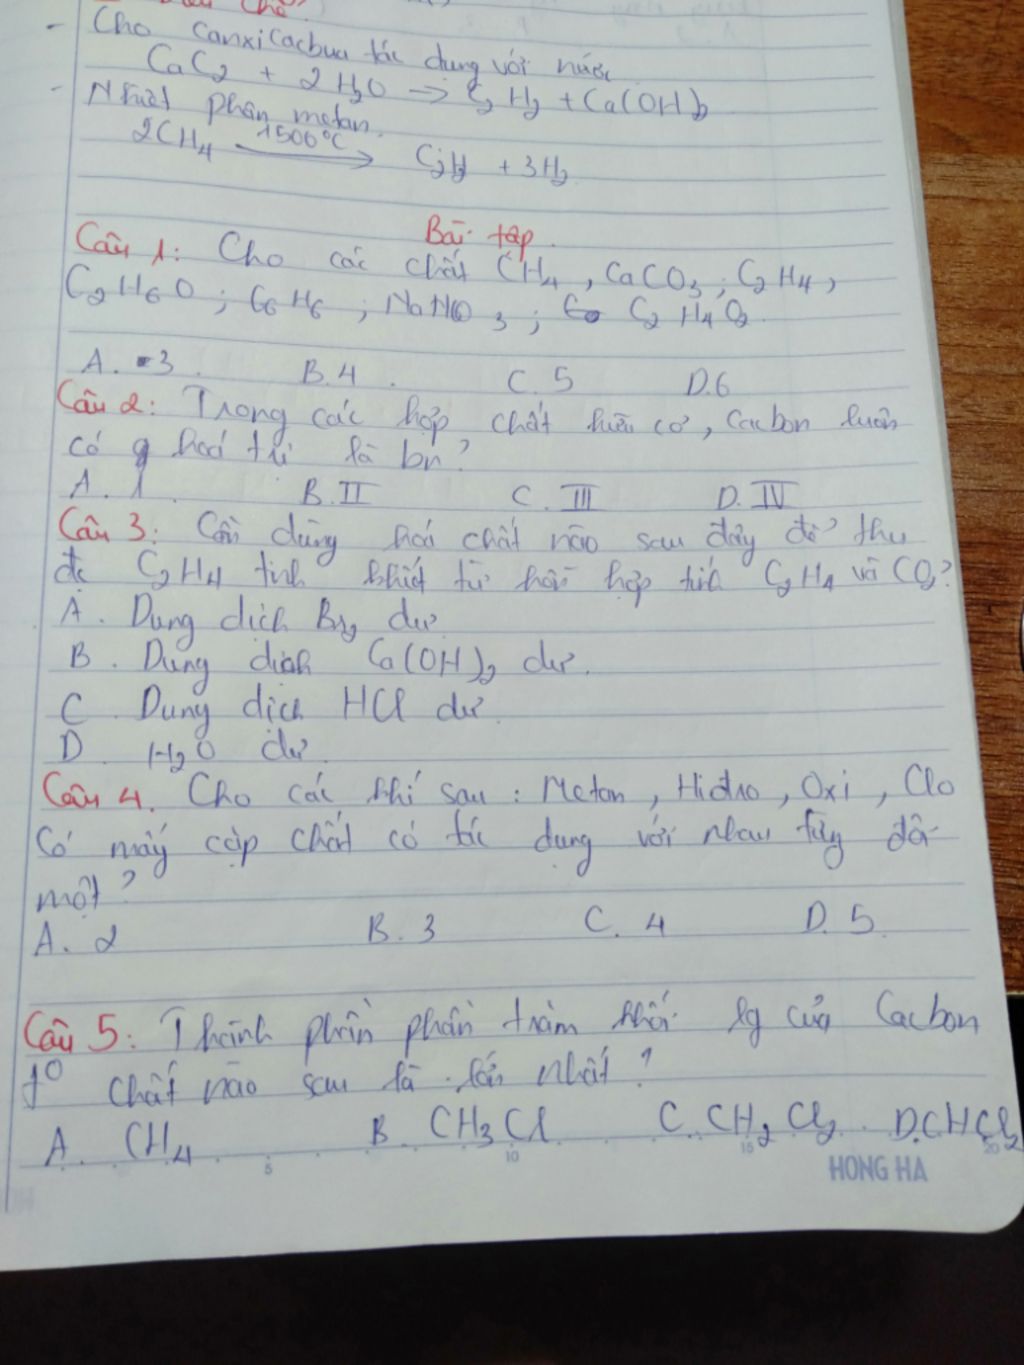 chế:
- Cho canxicacbua tác dụng với nước
CaC2 + 2H2O → C2H2 + Ca(OH)2
- Nhiệt phân metan.
2CH4 1500°C → C2H2 + 3H2
Bài tập
Câu 1: Cho các chất CH4, CaCO3; C2H4,
C2H6O; C6H6; NaNO3; C2H4O2.
A. 3. B. 4. C. 5 D. 6
Câu 2: Trong các hợp chất hữu cơ, cacbon luôn
có hoá trị là bn?
A. I B. II C. III D. IV
Câu 3: Cần dùng hoá chất nào sau đây để thu
đc C2H4 tinh khiết từ hỗn hợp C2H4 và CO2?
A. Dung dịch Br2 dư
B. Dung dịch Ca(OH)2 dư.
C Dung dịch HCl dư.
D H2O dư
Câu 4. Cho các khí sau: Metan, Hiđro, Oxi, Clo
Có mấy cặp chất có tác dụng với nhau từng đôi
một?
A. 2 B. 3 C. 4 D. 5
Câu 5: Thành phần phần trăm khối lg của Cacbon
chất nào sau là lớn nhất?
A. CH4 B. CH3Cl C. CH2Cl2. D. CHCl2
5 10 15 20
HONG HA